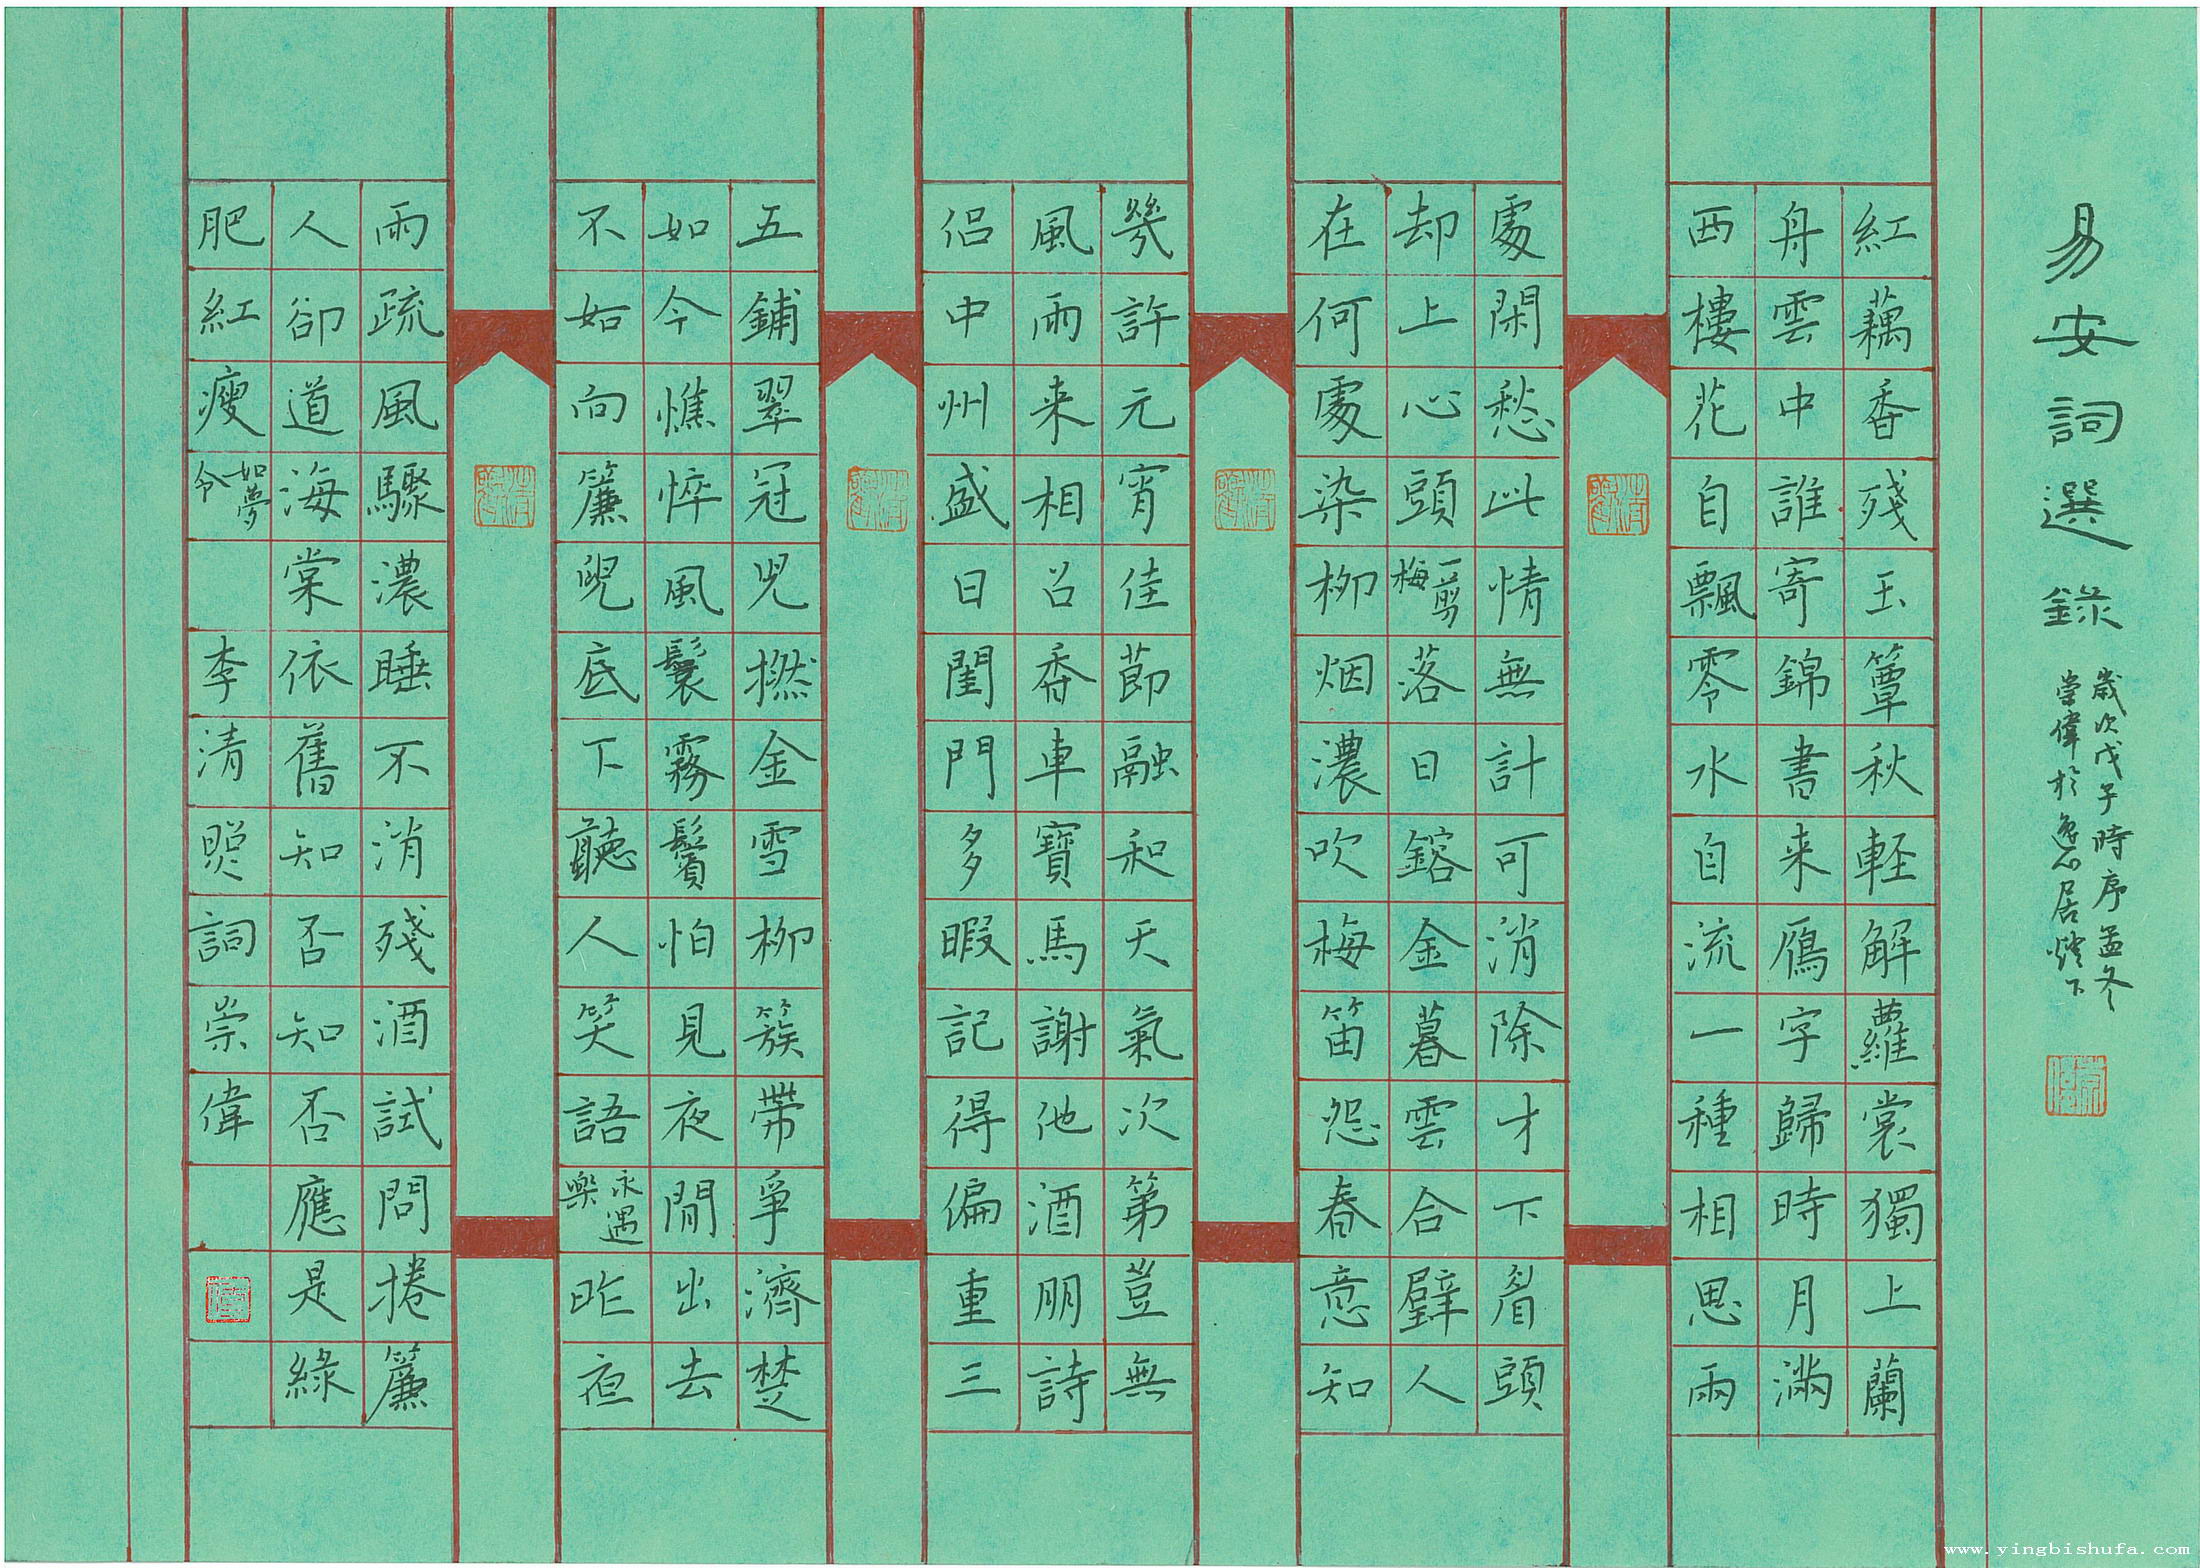 易安詞選錄
歲次戊子時序孟冬
崇偉於逸心居燈下
紅藕香殘玉簟秋軽解羅裳獨上蘭
舟雲中誰寄錦書来鴈字歸時月滿
西樓花自飄零水自流一種相思兩
處閑愁此情無計可消除才下眉頭
却上心頭一剪梅落日鎔金暮雲合璧人
在何處染柳烟濃吹梅笛怨春意知
幾許元宵佳節融和天氣次第豈無
風雨来相召香車寶馬謝他酒朋詩
侶中州盛日閨門多暇記得偏重三
五鋪翠冠兒撚金雪柳簇帶爭濟楚
如今憔悴風鬟霧鬢怕見夜間出去
不如向簾兒底下聽人笑語永遇樂昨夜
雨疏風驟濃睡不消殘酒試問捲簾
人卻道海棠依舊知否知否應是綠
肥紅瘦如夢令李清照詞崇偉
www.yingbishufa.com